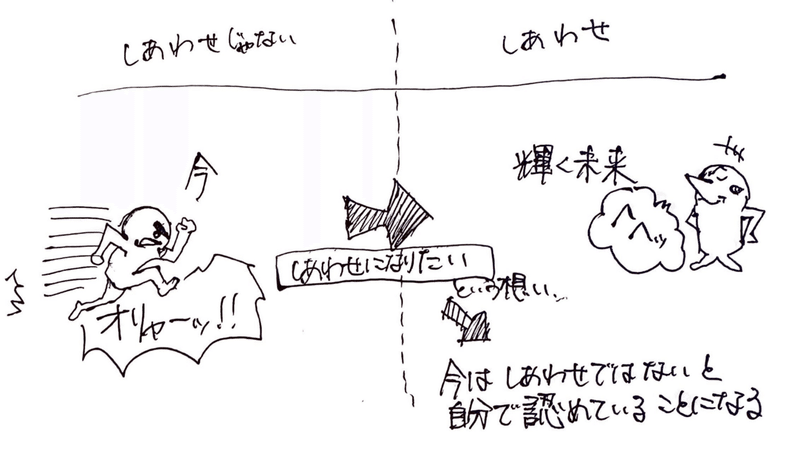 しあわせじゃない
しあわせ
今
輝く未来
へへッ
オリャーッ!!
しあわせになりたい
という想い
今はしあわせではないと
自分で認めていることになる